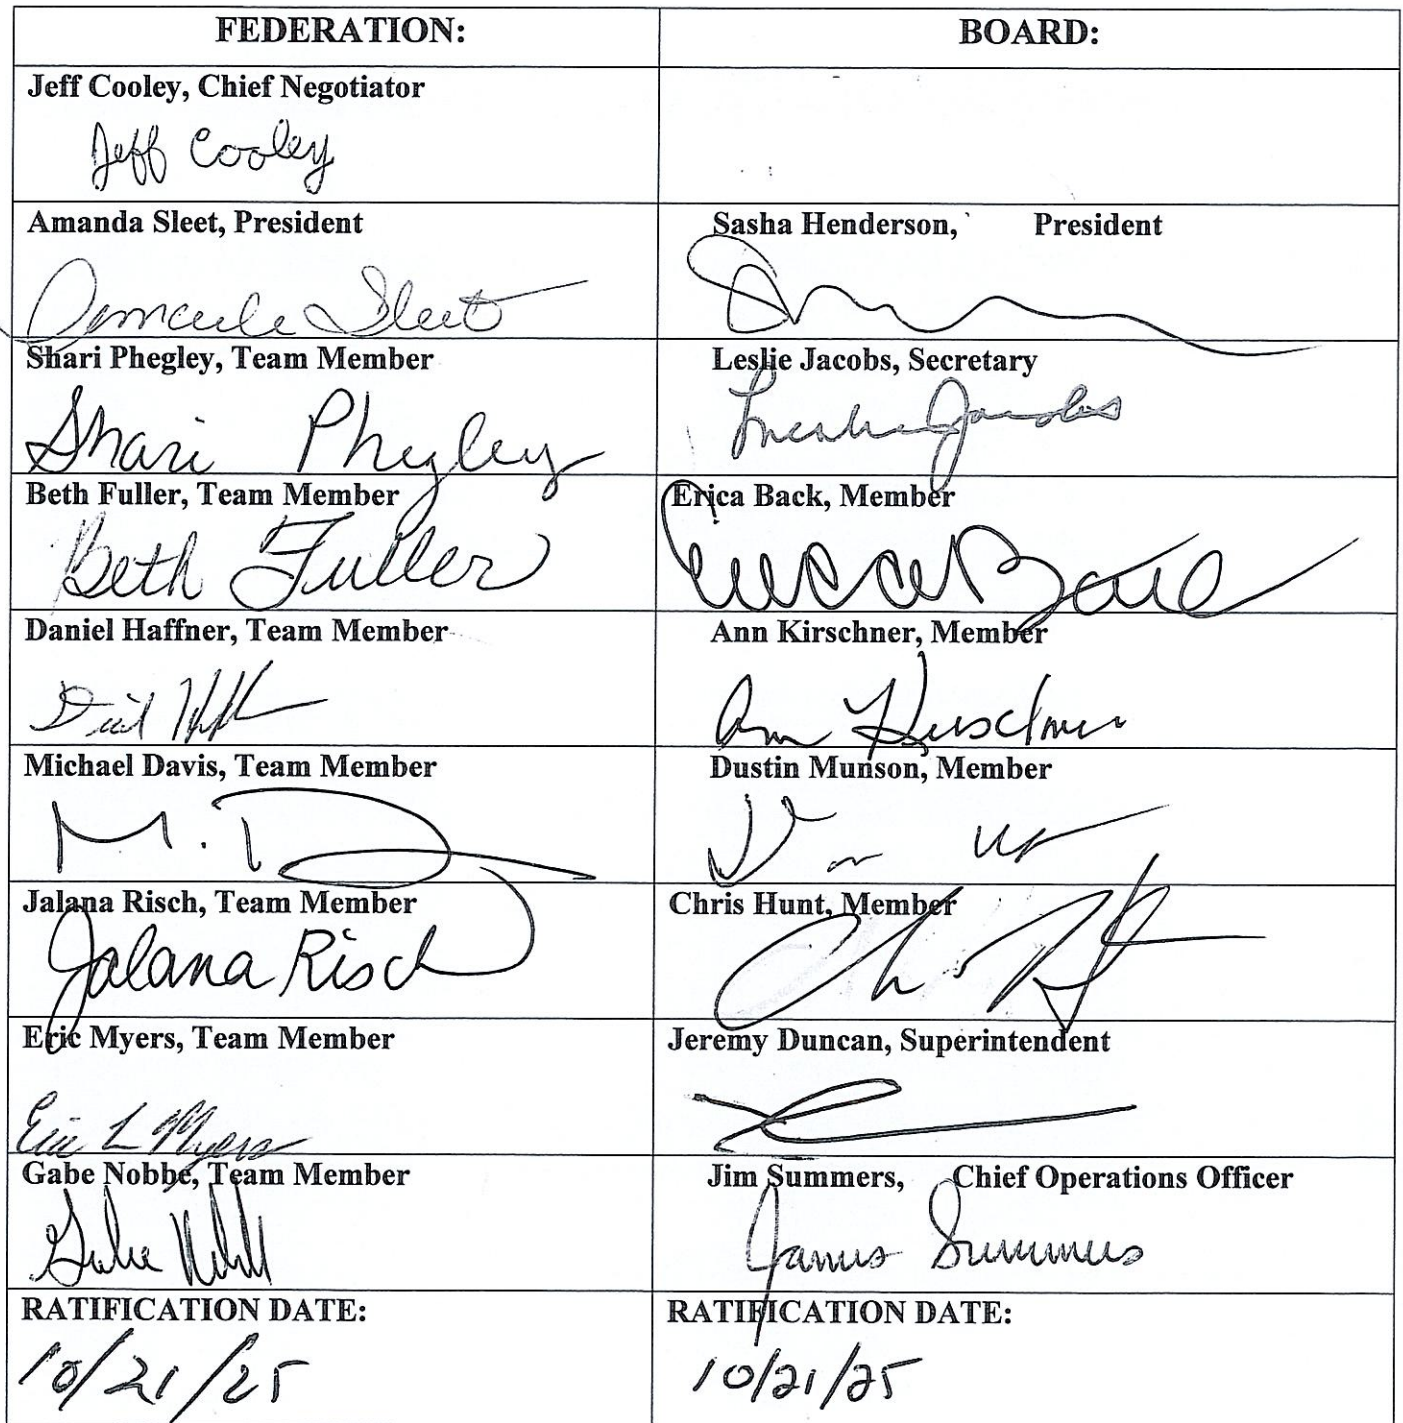 FEDERATION:
BOARD:
Jeff Cooley, Chief Negotiator
Jeff Cooley
Amanda Sleet, President
Amanda Sleet
Sasha Henderson, President
Shari Phegley, Team Member
Shari Phegley
Leslie Jacobs, Secretary
Leslie Jacobs
Beth Fuller, Team Member
Beth Fuller
Erica Back, Member
Erica Back
Daniel Haffner, Team Member
Ann Kirschner, Member
Ann Kirschner
Michael Davis, Team Member
M. D
Dustin Munson, Member
Jalana Risch, Team Member
Jalana Risch
Chris Hunt, Member
Eric Myers, Team Member
Eric L Myers
Jeremy Duncan, Superintendent
Gabe Nobbe, Team Member
Jim Summers, Chief Operations Officer
James Summers
RATIFICATION DATE:
10/21/25
RATIFICATION DATE:
10/21/25